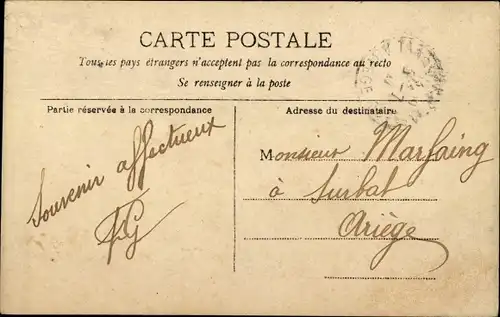 CARTE POSTALE
Tous les pays étrangers n'acceptent pas la correspondance au recto
Se renseigner à la poste
Partie réservée à la correspondance
Adresse du destinataire
Souvenir affectueux
Monsieur Marfaing
à Surbat
Ariège